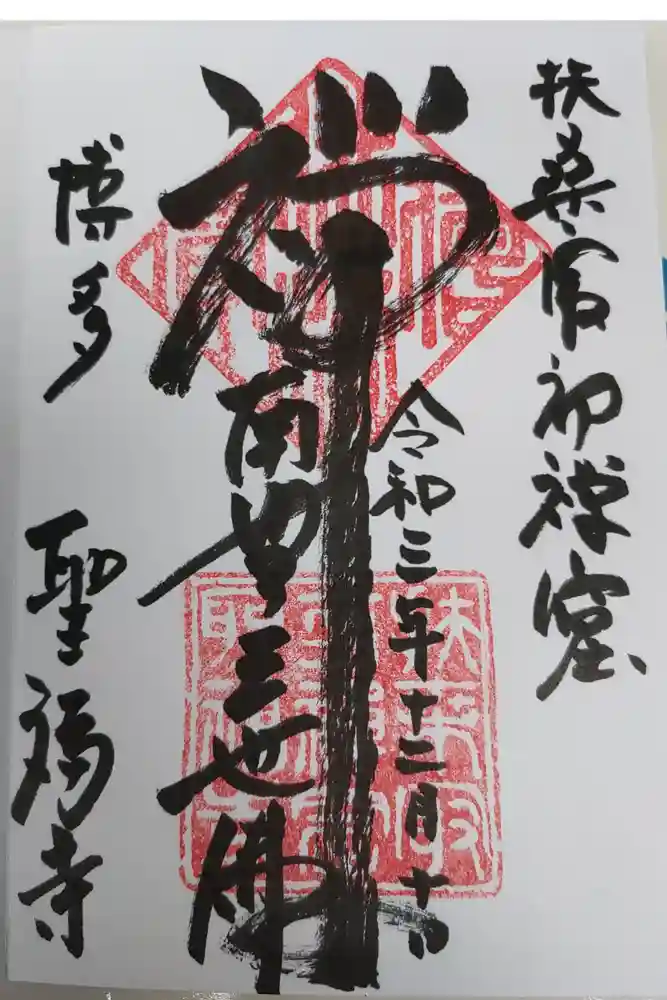 扶桑最初禅窟
令和三年十二月十日
禅
南無三世佛
博多 聖福寺